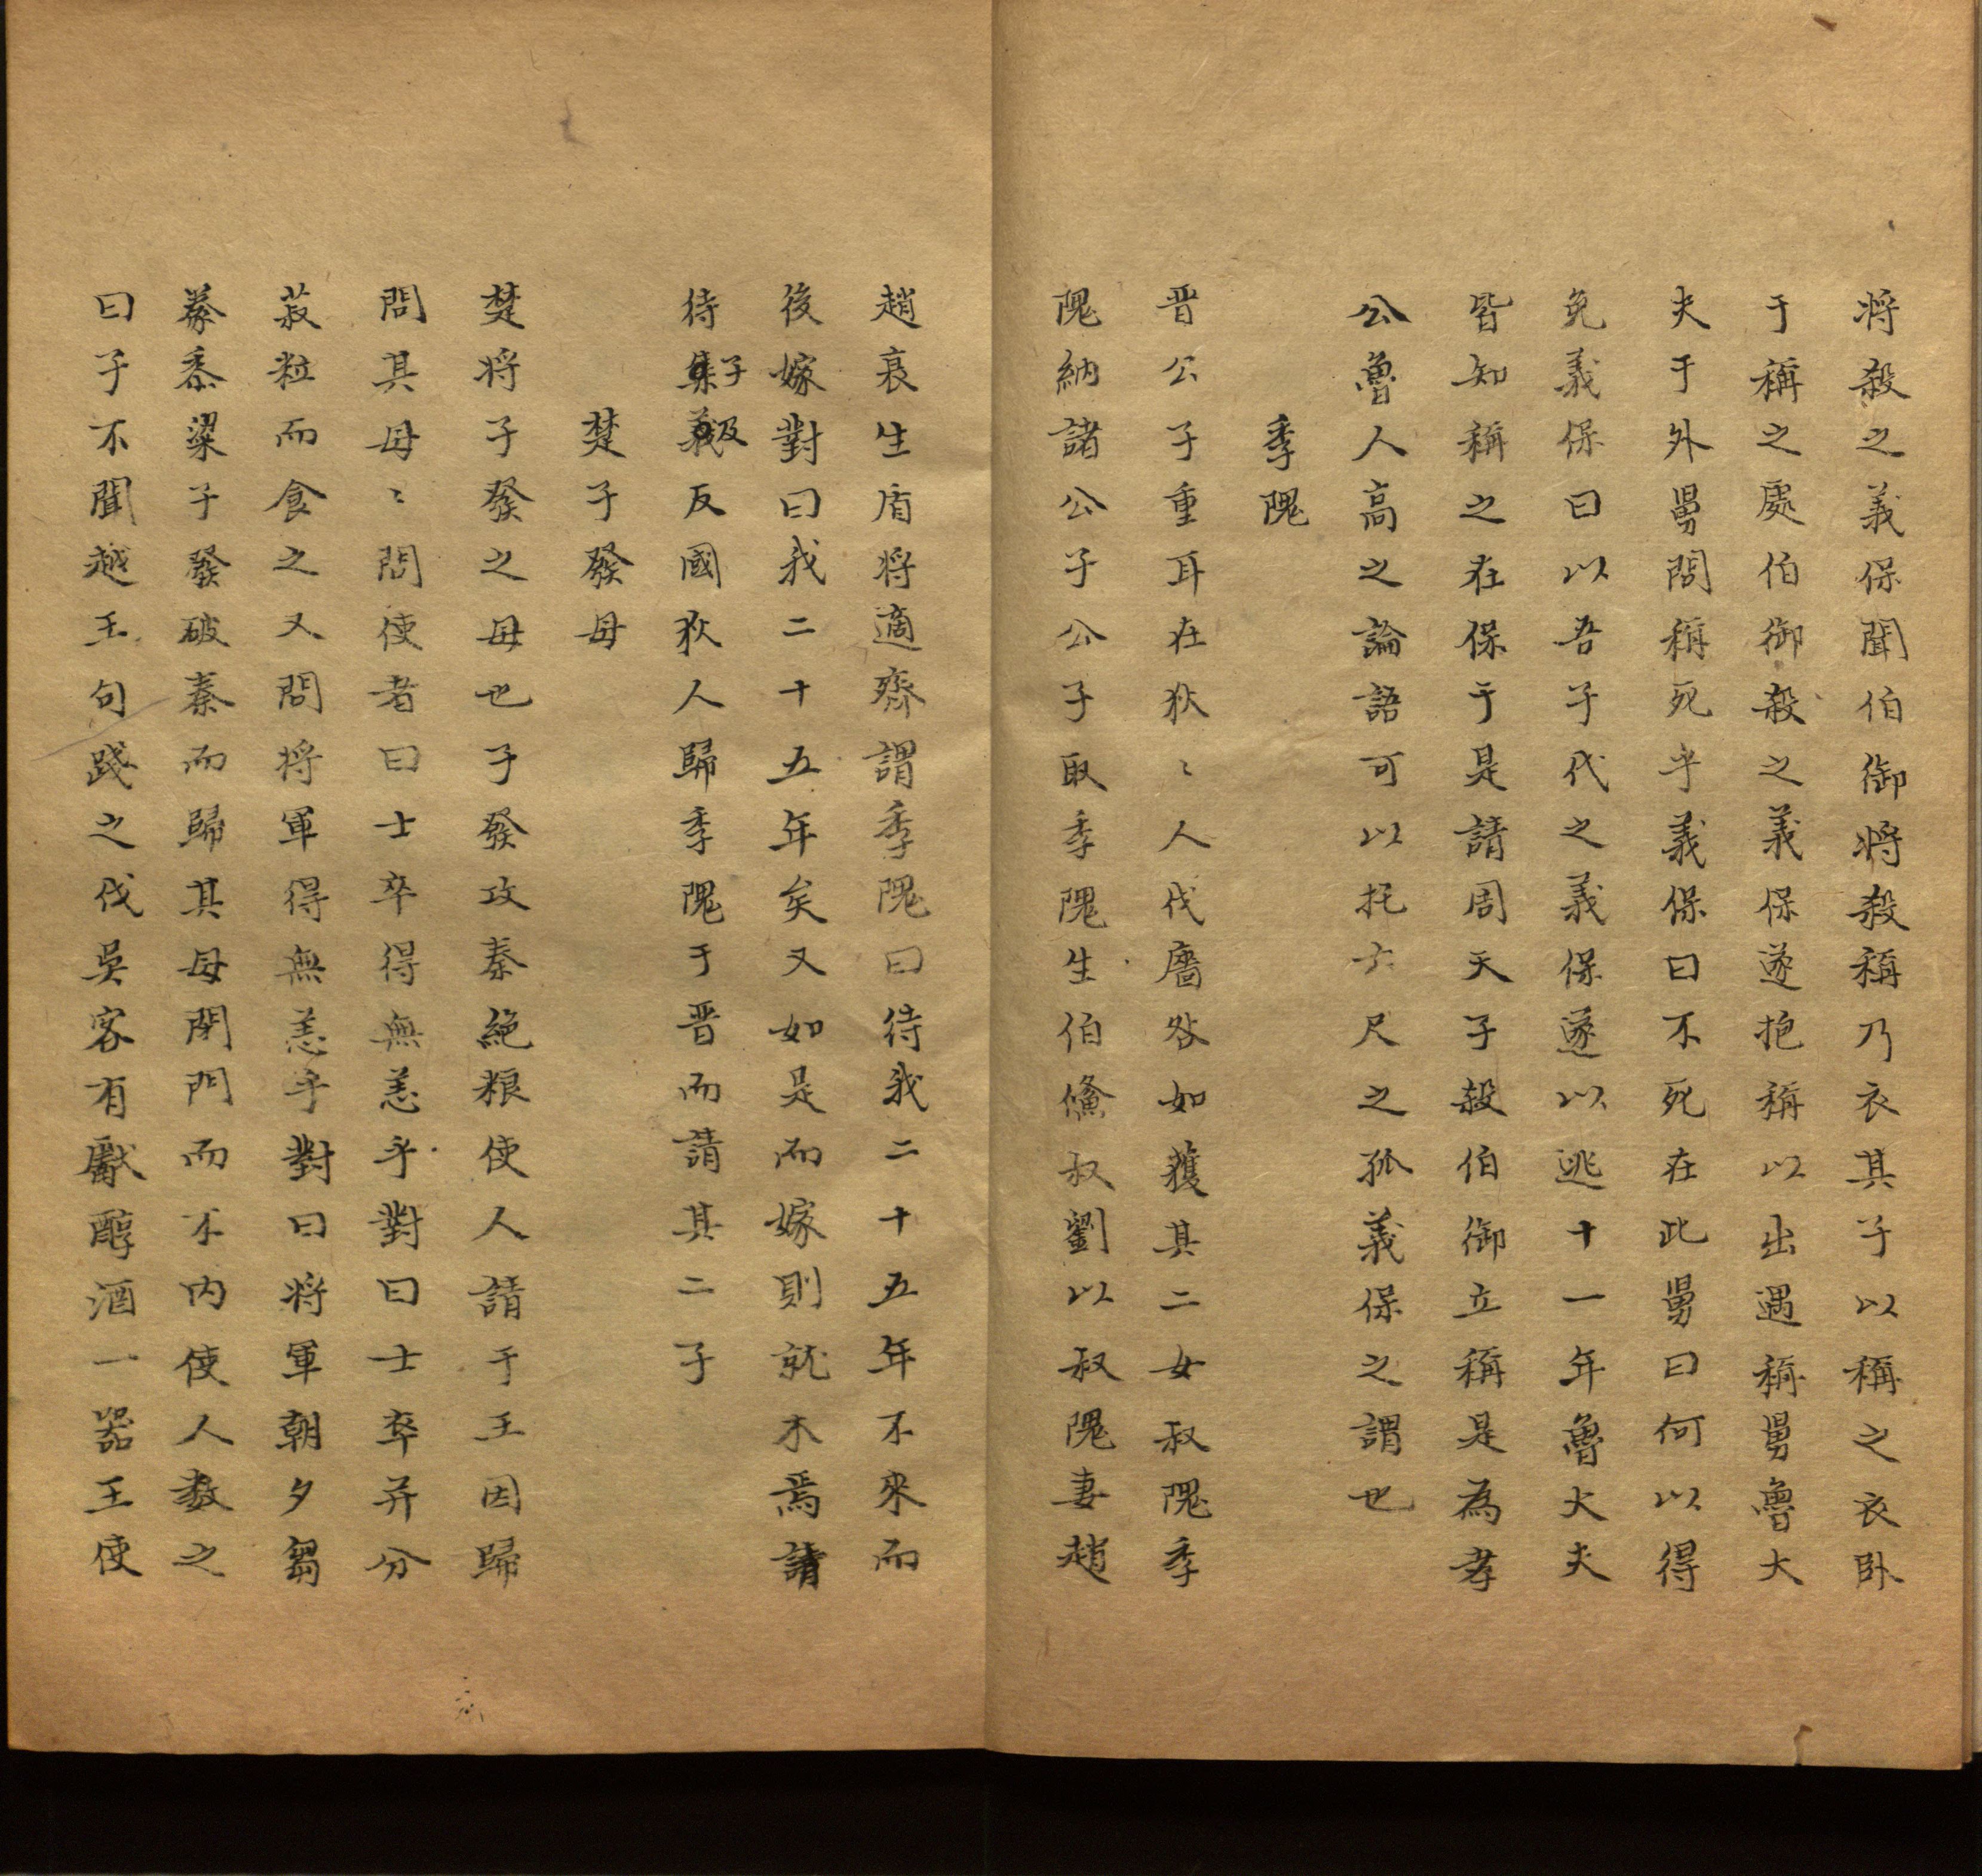 将殺之義保聞伯御将殺稱乃衣其子以稱之衣卧
于稱之處伯御殺之義保遂抱稱以出遇稱舅魯大
夫于外舅問稱死乎義保曰不死在此舅曰何以得
免義保曰以吾子代之義保遂以逃十一年魯大夫
皆知稱之在保于是請周天子殺伯御立稱是為孝
公魯人高之論語可以托六尺之孤義保之謂也
季隗
晋公子重耳在狄〻人伐廧咎如獲其二女叔隗季
隗納諸公子公子取季隗生伯鯈叔劉以叔隗妻趙
趙衰生盾将適齊謂季隗曰待我二十五年不來而
後嫁對曰我二十五年矣又如是而嫁則就木焉請
待子及反國狄人歸季隗于晋而請其二子
楚子發母
楚将子發之母也子發攻秦絶粮使人請于王因歸
問其母〻問使者曰士卒得無恙乎對曰士卒并分
菽粒而食之又問将軍得無恙乎對曰将軍朝夕芻
豢黍粱子發破秦而歸其母閉門而不内使人数之
曰子不聞越王句踐之伐吳客有獻醇酒一器王使